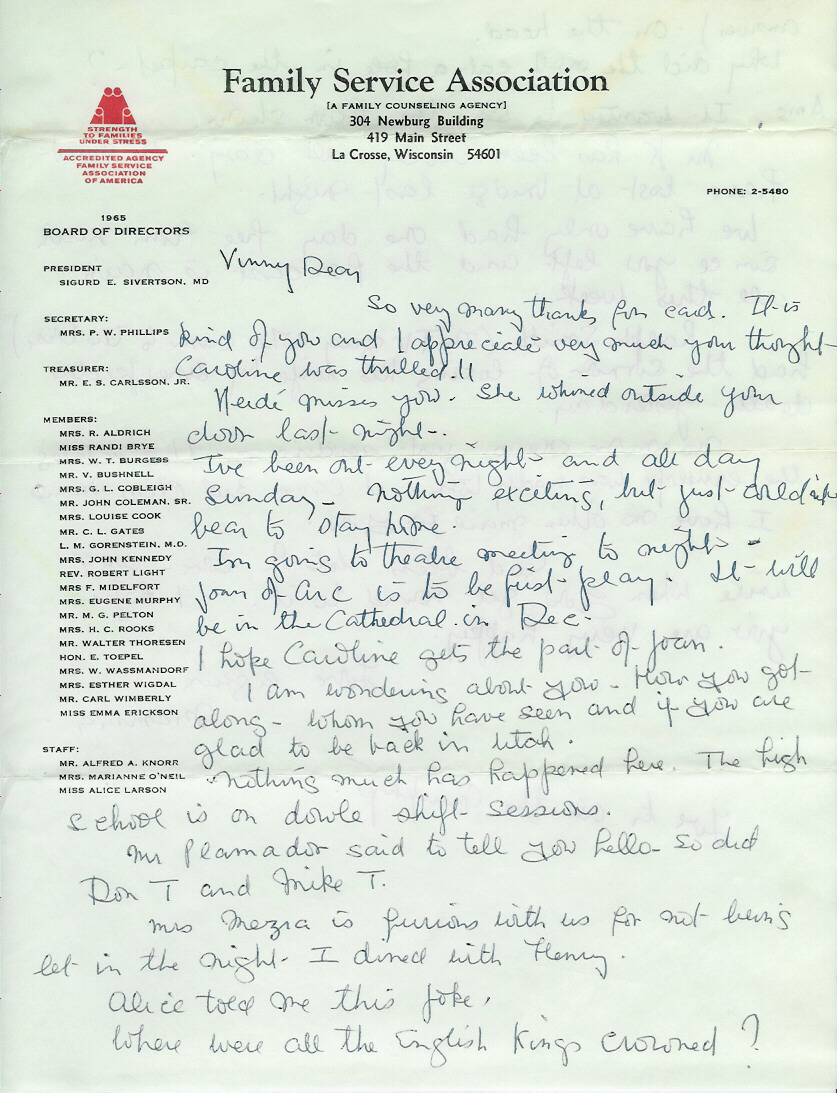 Family Service Association
[A FAMILY COUNSELING AGENCY]
304 Newburg Building
419 Main Street
La Crosse, Wisconsin 54601
STRENGTH
TO FAMILIES
UNDER STRESS
ACCREDITED AGENCY
FAMILY SERVICE
ASSOCIATION
OF AMERICA
PHONE: 2-5480
1965
BOARD OF DIRECTORS
PRESIDENT
SIGURD E. SIVERTSON, MD
SECRETARY:
MRS. P. W. PHILLIPS
TREASURER:
MR. E. S. CARLSSON, JR.
MEMBERS:
MRS. R. ALDRICH
MISS RANDI BRYE
MRS. W. T. BURGESS
MR. V. BUSHNELL
MRS. G. L. COBLEIGH
MR. JOHN COLEMAN, SR.
MRS. LOUISE COOK
MR. C. L. GATES
L. M. GORENSTEIN, M.D.
MRS. JOHN KENNEDY
REV. ROBERT LIGHT
MRS F. MIDELFORT
MRS. EUGENE MURPHY
MR. M. G. PELTON
MRS. H. C. ROOKS
MR. WALTER THORESEN
HON. E. TOEPEL
MRS. W. WASSMANDORF
MRS. ESTHER WIGDAL
MR. CARL WIMBERLY
MISS EMMA ERICKSON
STAFF:
MR. ALFRED A. KNORR
MRS. MARIANNE O'NEIL
MISS ALICE LARSON
Vinny Dear
So very many thanks for card. It is
kind of you and I appreciate very much your thought
Caroline was thrilled!!
Heidé misses you. She whined outside your
door last night.
I've been out every night and all day
Sunday - nothing exciting, but just couldn't
bear to stay home.
I'm going to theatre meeting to night -
Joan of Arc is to be first play. It will
be in the Cathedral in Dec.
I hope Caroline gets the part of Joan.
I am wondering about you - How you got
along - whom you have seen and if you are
glad to be back in Utah.
Nothing much has happened here. The high
school is on double shift sessions.
Mr said to tell you hello - so did
Ron T and Mike T.
Mrs is furious with us for not being
let in the night I dined with Henry.
Alice told me this joke,
Where were all the English Kings crowned?